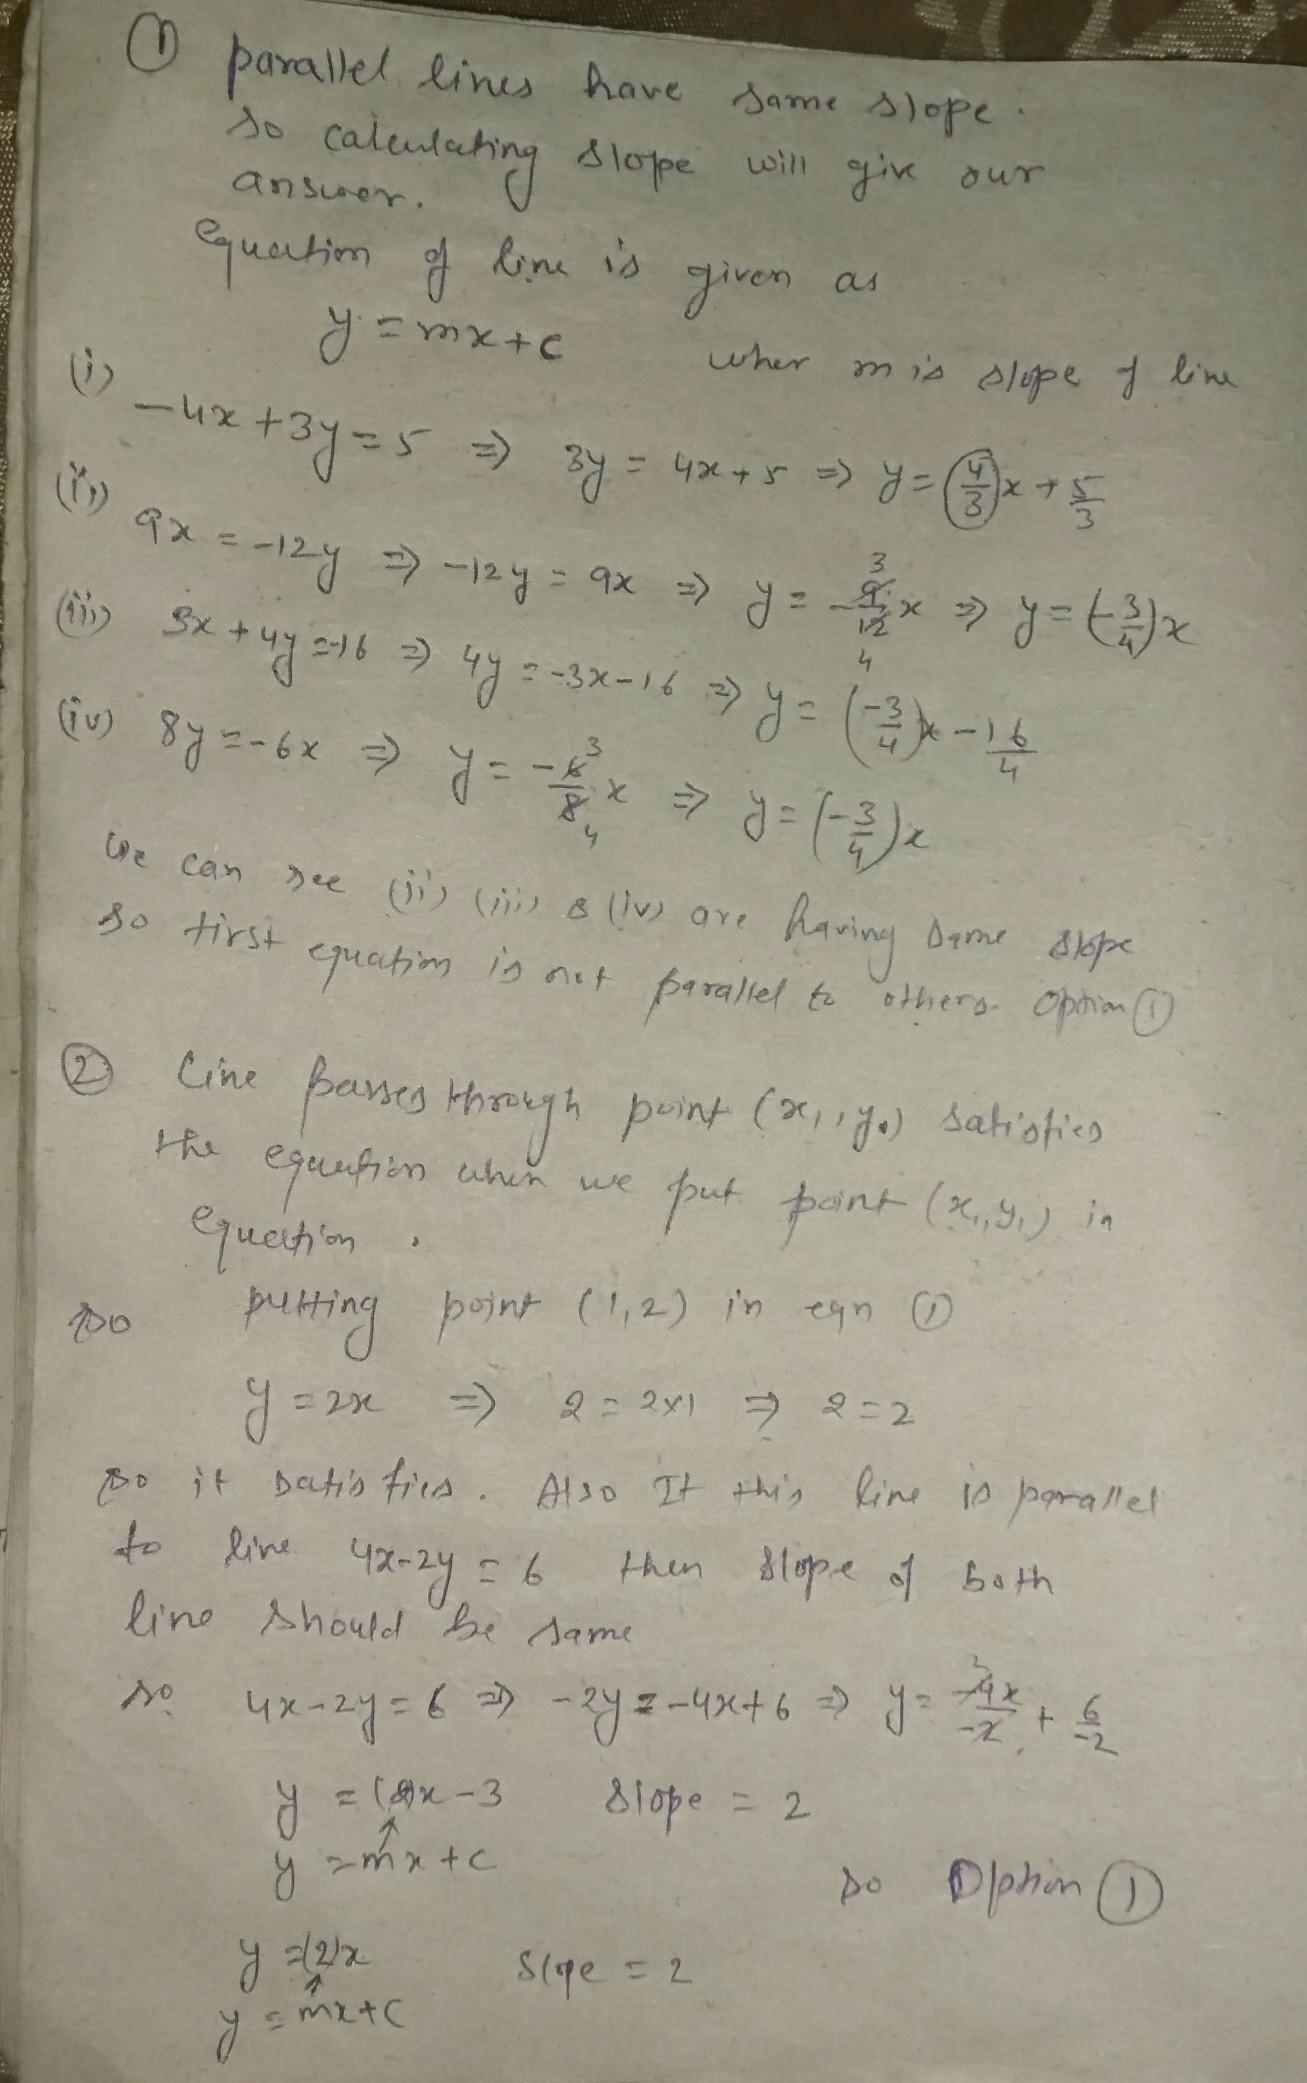 ① parallel lines have same slope.
so calculating slope will give our
answer.
equation of line is given as
y = mx + c wher m is slope of line
(i) -4x + 3y = 5 ⇒ 3y = 4x + 5 ⇒ y = (4/3)x + 5/3
(ii) 9x = -12y ⇒ -12y = 9x ⇒ y = -9/12 x ⇒ y = (-3/4)x
(iii) 3x + 4y = -16 ⇒ 4y = -3x - 16 ⇒ y = (-3/4)x - 16/4
(iv) 8y = -6x ⇒ y = -6/8 x ⇒ y = (-3/4)x
We can see (ii) (iii) & (iv) are having same slope
so first equation is not parallel to others. Option ①
② Line passes through point (x₁, y₁) satisfies
the equation when we put point (x₁, y₁) in
equation.
So putting point (1,2) in eqn ①
y = 2x ⇒ 2 = 2×1 ⇒ 2 = 2
So it satisfies. Also If this line is parallel
to line 4x-2y = 6 then slope of both
line should be same
so 4x-2y = 6 ⇒ -2y = -4x+6 ⇒ y = -4x/-2 + 6/-2
y = (2)x - 3 Slope = 2
y = mx + c
so Option ①
y = (2)x Slope = 2
y = mx + c